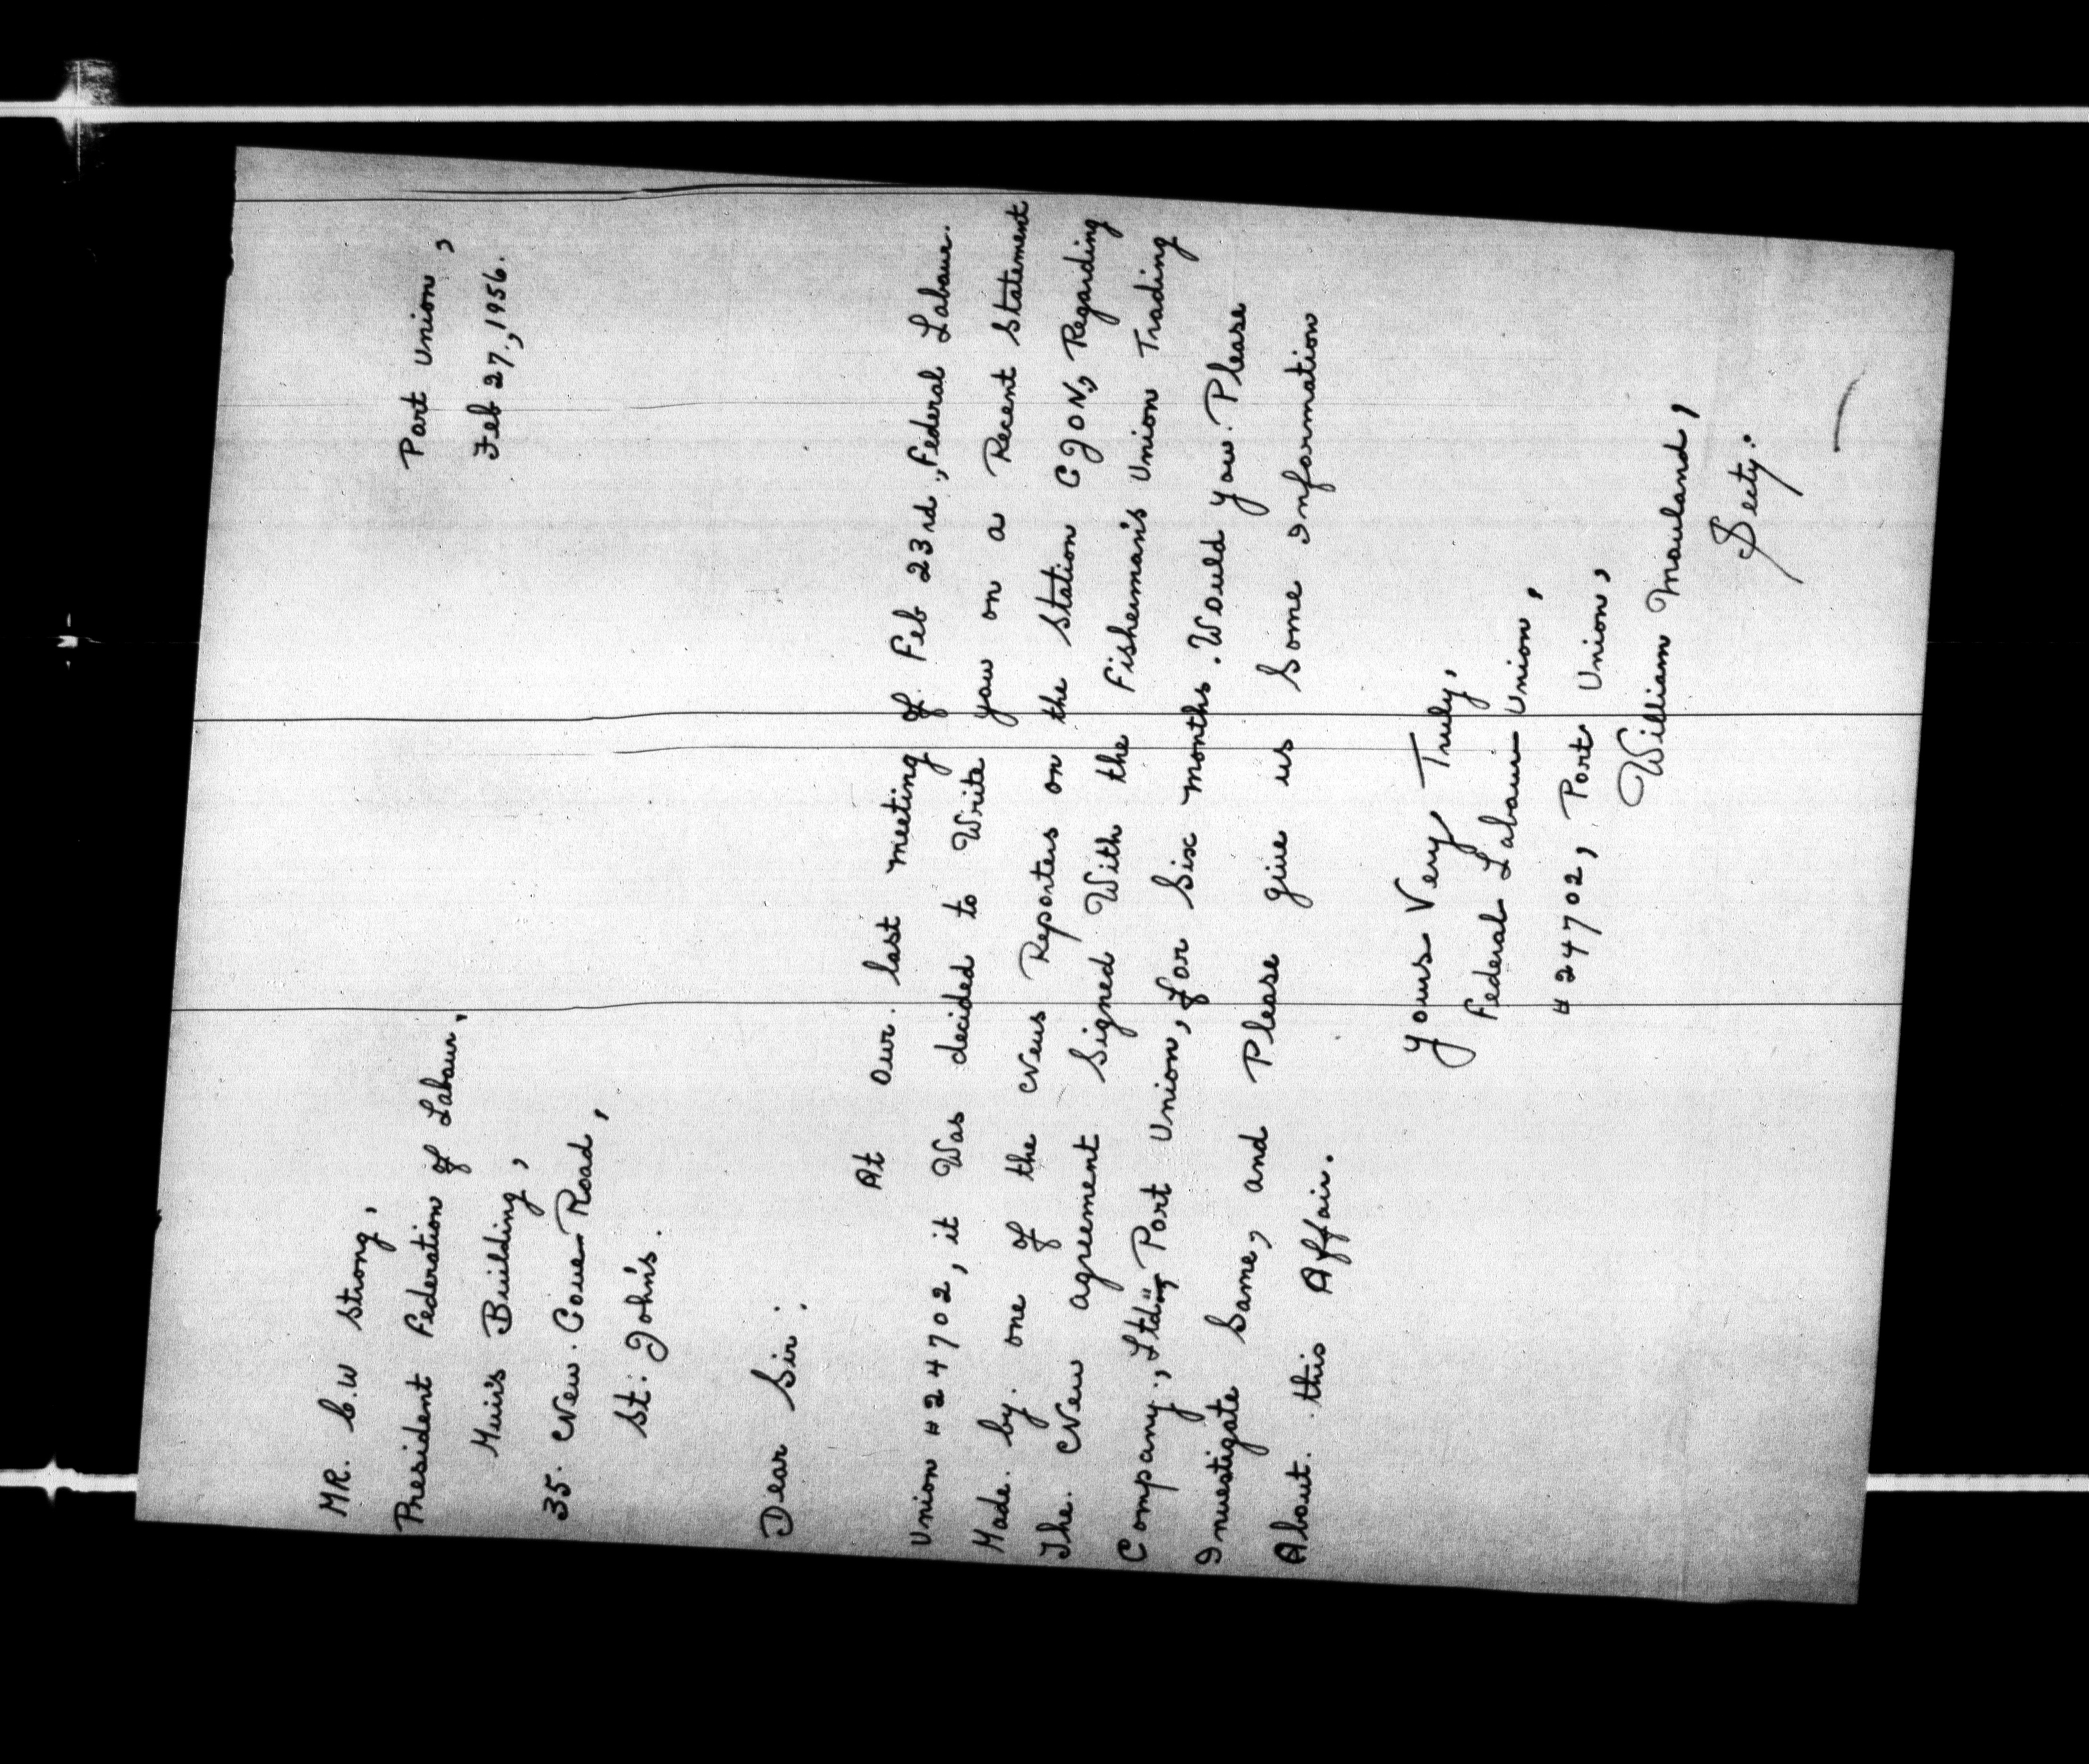 Port Union,
Feb 27., 1956.
MR. C.W Strong,
President Federation of Labour,
Muir's Building,
35. New. Cove Road,
St. John's.
Dear Sir:
At our. last meeting of Feb 23rd., Federal Labour.
Union #24702, it Was decided to Write you on a Recent Statement
Made. by. one of the News Reporters on the Station CJON, Regarding
The. New agreement Signed With the Fisherman's Union Trading
Company., Ltd", Port Union, for Six months. Would you. Please
Investigate Same, and Please give us Some Information
About. this Affair.
Yours Very Truly,
Federal Labour Union,
#24702, Port Union,
William Mouland,
Secty.